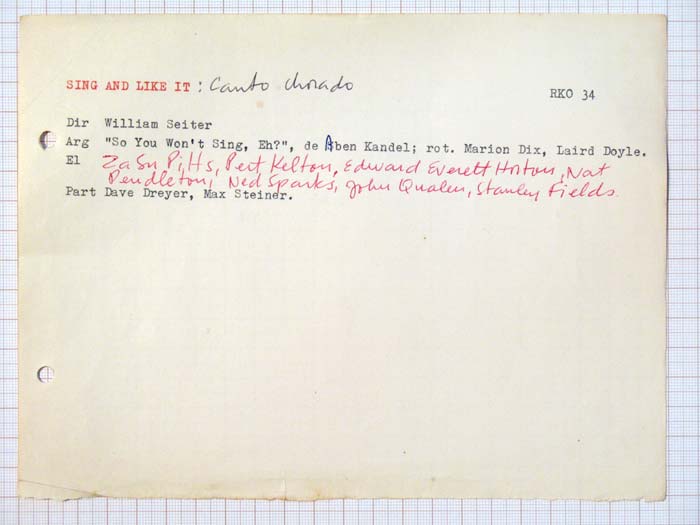 SING AND LIKE IT : Canto chorado
RKO 34
Dir William Seiter
Arg "So You Won't Sing, Eh?", de Aben Kandel; rot. Marion Dix, Laird Doyle.
El ZaSu Pitts, Pert Kelton, Edward Everett Horton, Nat
Pendleton, Ned Sparks, John Qualen, Stanley Fields.
Part Dave Dreyer, Max Steiner.